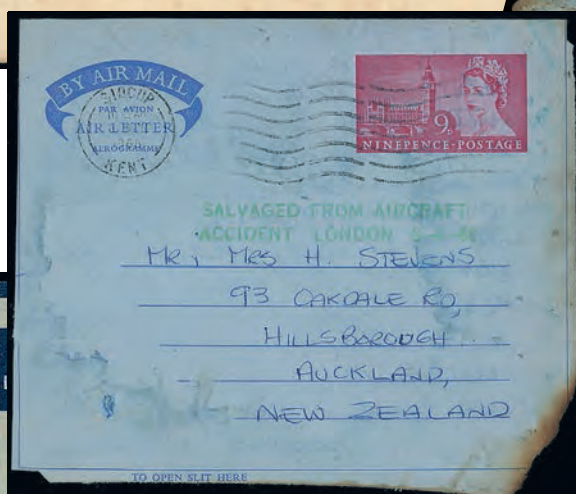 BY AIR MAIL
PAR AVION
AIR LETTER
AEROGRAMME
SIDCUP
KENT
9D
NINEPENCE·POSTAGE
SALVAGED FROM AIRCRAFT
ACCIDENT LONDON
Mr & Mrs H. STEVENS
93 OAKDALE RD,
HILLSBOROUGH
AUCKLAND,
NEW ZEALAND
TO OPEN SLIT HERE